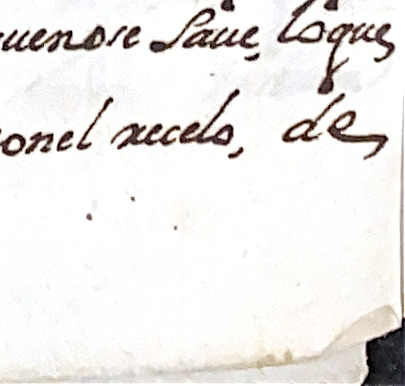 quenose Saue, loque,
conel recelo, de,